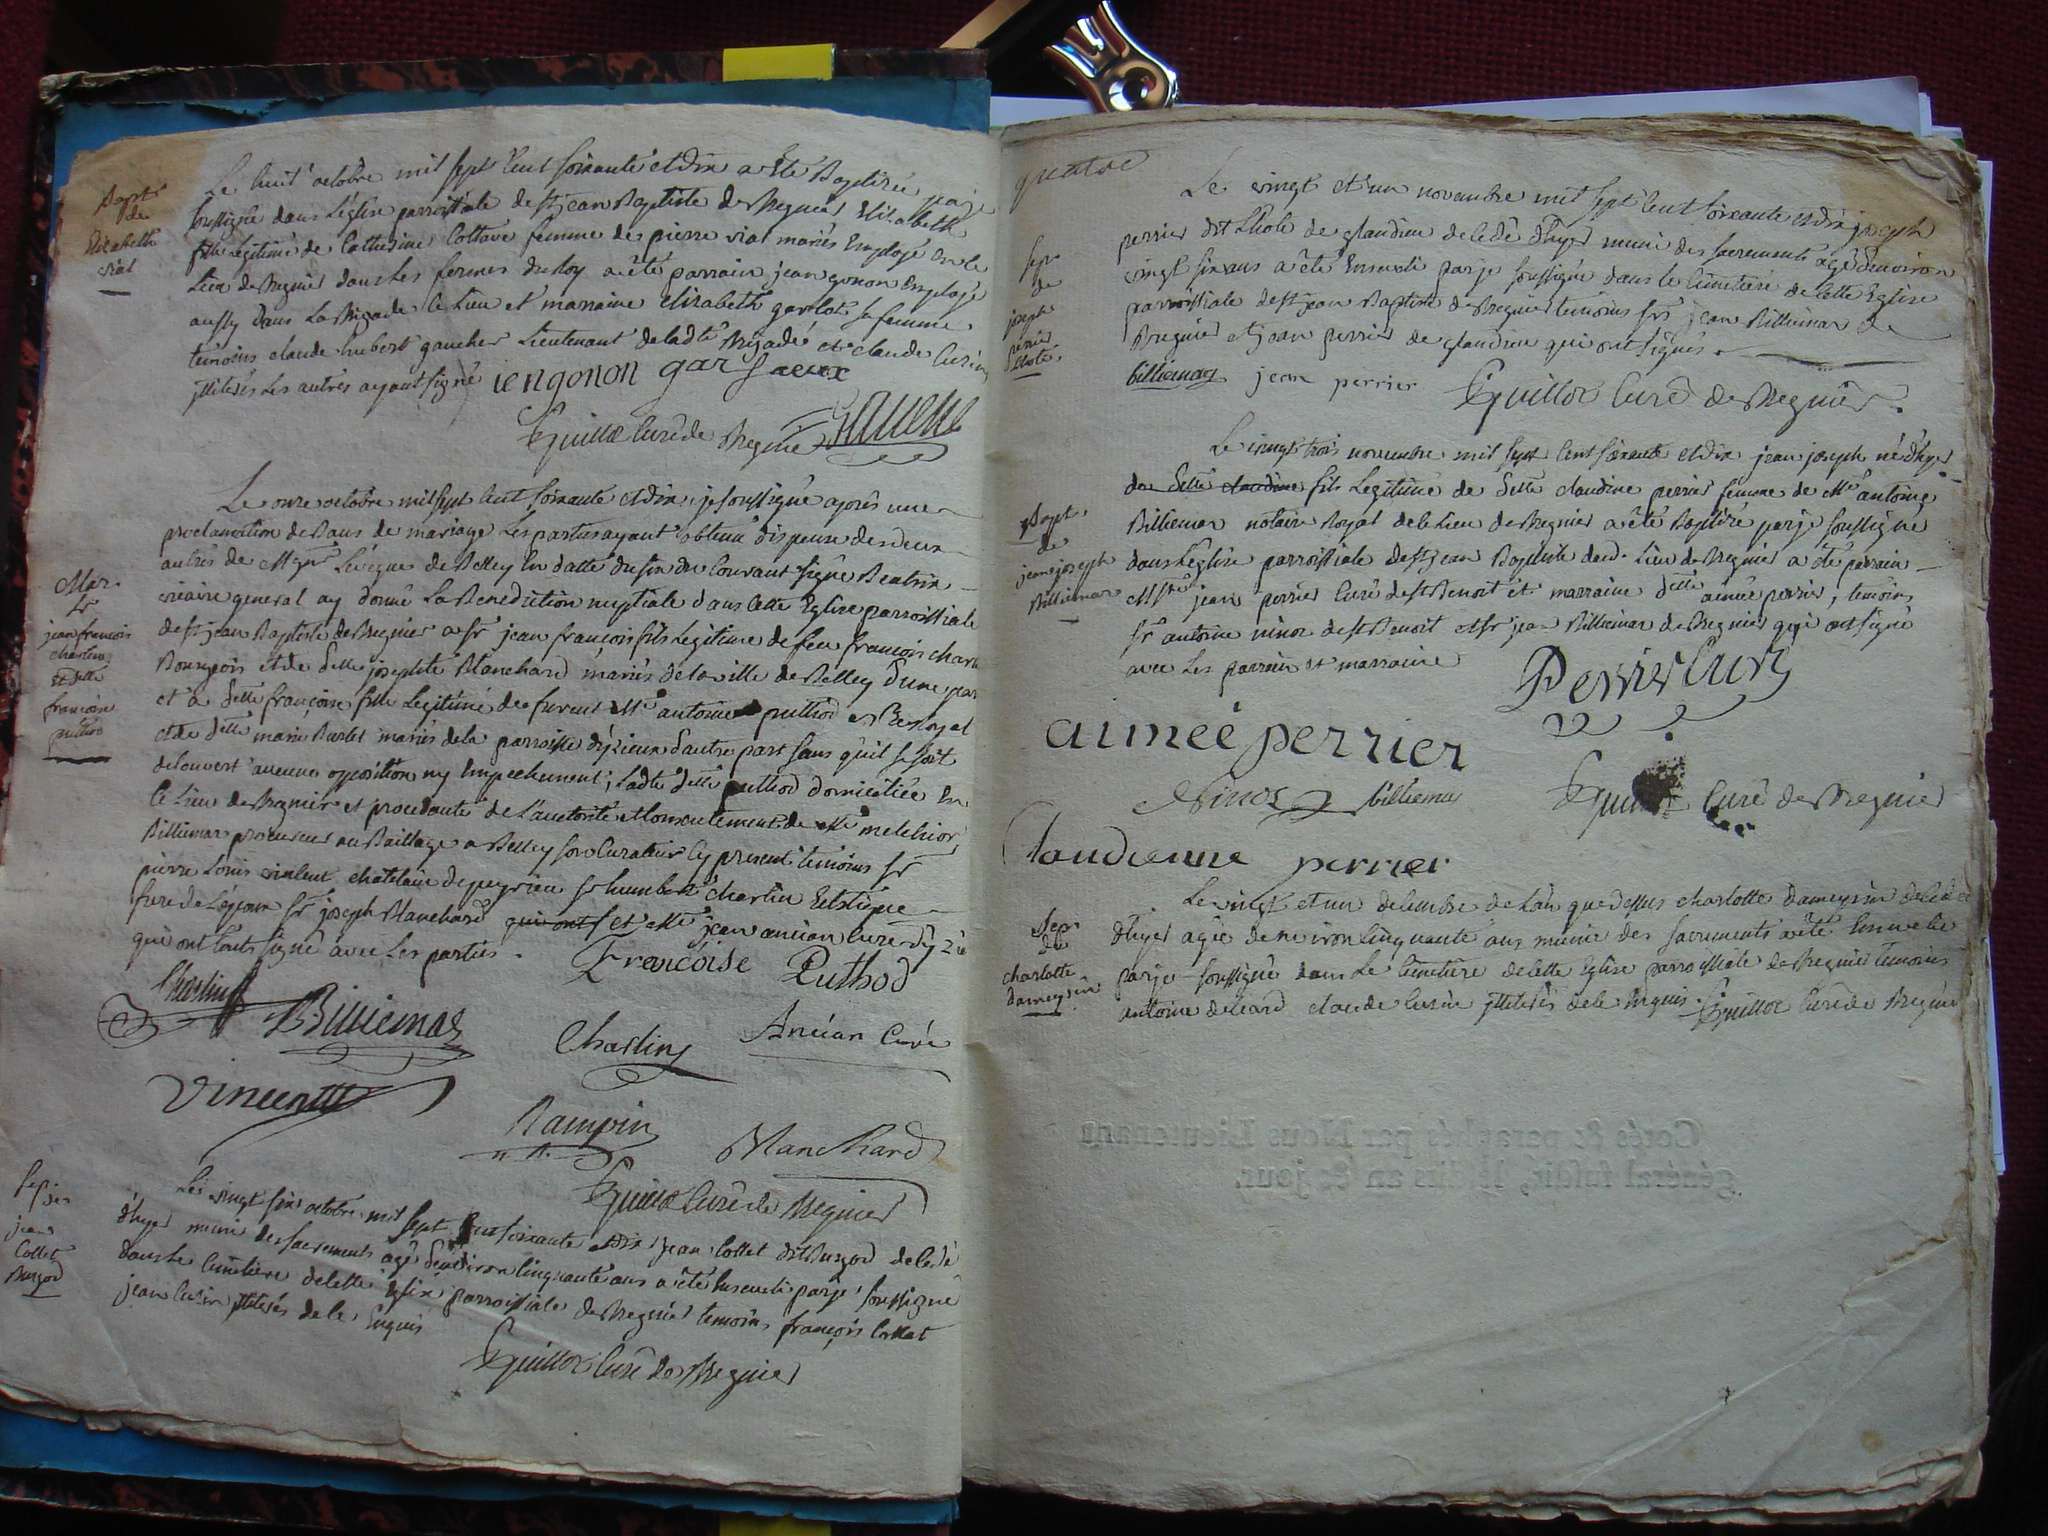 Bapt.
de
Elizabeth
vial
Le huit octobre mil sept cent soixante et dix a été Baptizée par je
soussigné dans L'église parroissiale de st jean Baptiste de Bregnier Elizabeth
fille Légitime de Catherine Cottave femme de pierre vial mariés Employé en ce
Lieu de Bregnier dans Les fermes du Roy a été parrain jean gonon Employé
aussy Dans La Brigade ce Lieu et marraine Elizabeth garlot sa femme.
temoins claude hubert gaucher Lieutenant de lad.te Brigade, et claude Curin
illiterés Les autres ayant signé iengonon gar
Guillot Curé de Bregnier
Mar.
Sr
jean françois
charlin
et delle
françoise
puthod
Le onze octobre mil sept cent soixante et dix, je soussigné après une
proclamation de Bans de mariage Les parties ayant obtenu dispense des deux
autres de Mgr L'évêque de Belley En datte du six du Courant signé
vicaire general ay donné La Benediction nuptiale dans cette Eglise parroissiale
de st jean Baptiste de Bregnier a sr jean françois fils Legitime de feu françois charlin
Bourgeois et de delle josephte Blanchard mariés de la ville de Belley d'une part
et a delle françoise fille Legitime de furent Me antoine puthod
et de delle marie mariés de la parroisse d'yzieux d'autre part sans qu'il se soit
decouvert aucune opposition ny Empechement; Ladte delle puthod domiciliée En
ce Lieu de Bregnier et procedante de L'autorité et Consentement de Me melchior
Billiemaz procureur au Baillage a Belley son Curateur cy present temoins sr
pierre Louis vincent chatelain de peyrieu sr humbert charlin
frere de L'époux sr joseph Blanchard qui ont s et Me jean ancian Curé d'yzieu
qui ont touts signé avec Les parties.
Françoise Puthod
Charlin
Billiemaz
Charlin
Ancian Curé
Vincent
Rampin
Blanchard
Guillot Curé de Bregnier
Sep. de
jean
Collet
Burgod
Le vingt six octobre mil sept Cent soixante et dix jean Collet dit Burgod de
d'hyer muni des sacrements agé d'environ Cinquante ans a été Enseveli par je soussigné
dans Le Cimetiere de Cette Eglise parroissiale de Bregnier temoins françois Collet
jean Curin illiterés de ce Enquis
Guillot Curé de Bregnier
quatre
Sep.
de
joseph
perier
Le vingt et un novembre mil sept Cent soixante et dix joseph
perrier dit de glandieu decedé d'hyer muni des sacrements agé d'environ
vingt six ans a été Enseveli par je soussigné dans Le Cimetiére de Cette Eglise
parroissiale de st jean Baptiste de Bregnier temoins srs jean Billiemaz de
Bregnier et jean perrier de glandieu qui ont signés.
billiemaz jean perrier Guillot Curé de Bregnier.
Bapt.
de
jean joseph
Billiemaz
Le vingt trois novembre mil sept Cent soixante et dix jean joseph né d'hyer
de delle claudine fils Legitime de delle claudine perrier femme de Me antoine
Billiemaz notaire Royal de ce Lieu de Bregnier a été Baptizé par je soussigné
dans L'église parroissiale de st jean Baptiste dud. Lieu de Bregnier a été parrain
Mre jean perrier Curé de st Benoit et marraine delle aimée perrier, temoins
sr antoine ninoz de st Benoit et sr jean Billiemaz de Bregnier qui ont signé
avec Les parrain et marraine
Perrier Curé
aimeé perrier
Ninoz billiemaz Guillot Curé de Bregnier
Claudienne perrier
Sep.
de
charlotte
dameysin
Le vingt et un decembre de L'an que dessus charlotte dameysin decedée
d'hyer agée de environ Cinquante ans munie des sacrements a été Ensevelie
par je soussigné dans Le Cimetiére de Cette Eglise parroissiale de Bregnier temoins
antoine claude Curin illiterés de ce Enquis. Guillot Curé de Bregnier
Cotés & paraphés par Nous Lieutenant
général susdit, lesdits an & jour.